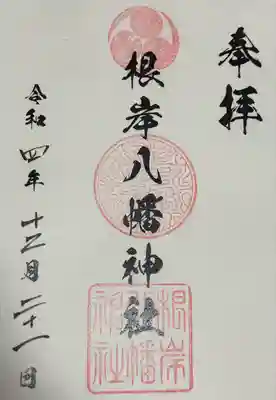 奉拝
根岸八幡神社
根岸
八幡
神社
令和四年十二月二十一日